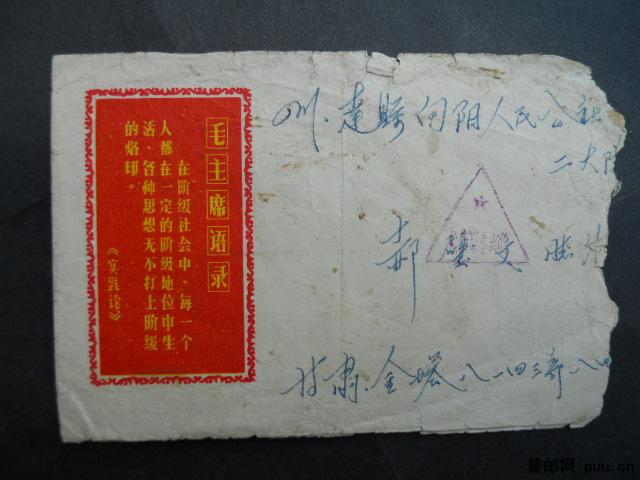 毛主席语录
在阶级社会中,每一个
人都在一定的阶级地位中生
活,各种思想无不打上阶级
的烙印。
《实践论》
四川·达县向阳人民公社
二大队
郝 文
甘肃·金塔·八一四三部八四
普邮网 puu.cn